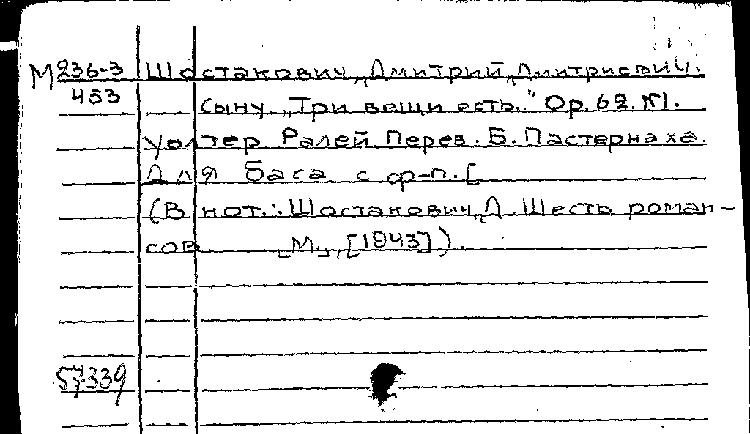 М 236-3 Шостакович, Дмитрий Дмитриевич.
453 Сыну „Три вещи есть." Ор. 62. №1.
Уолтер Ралей Перев. Б. Пастернака.
Для баса с ф-п. [
(В нот.: Шостакович, Д. Шесть роман-
сов [М., [1943]).
57339